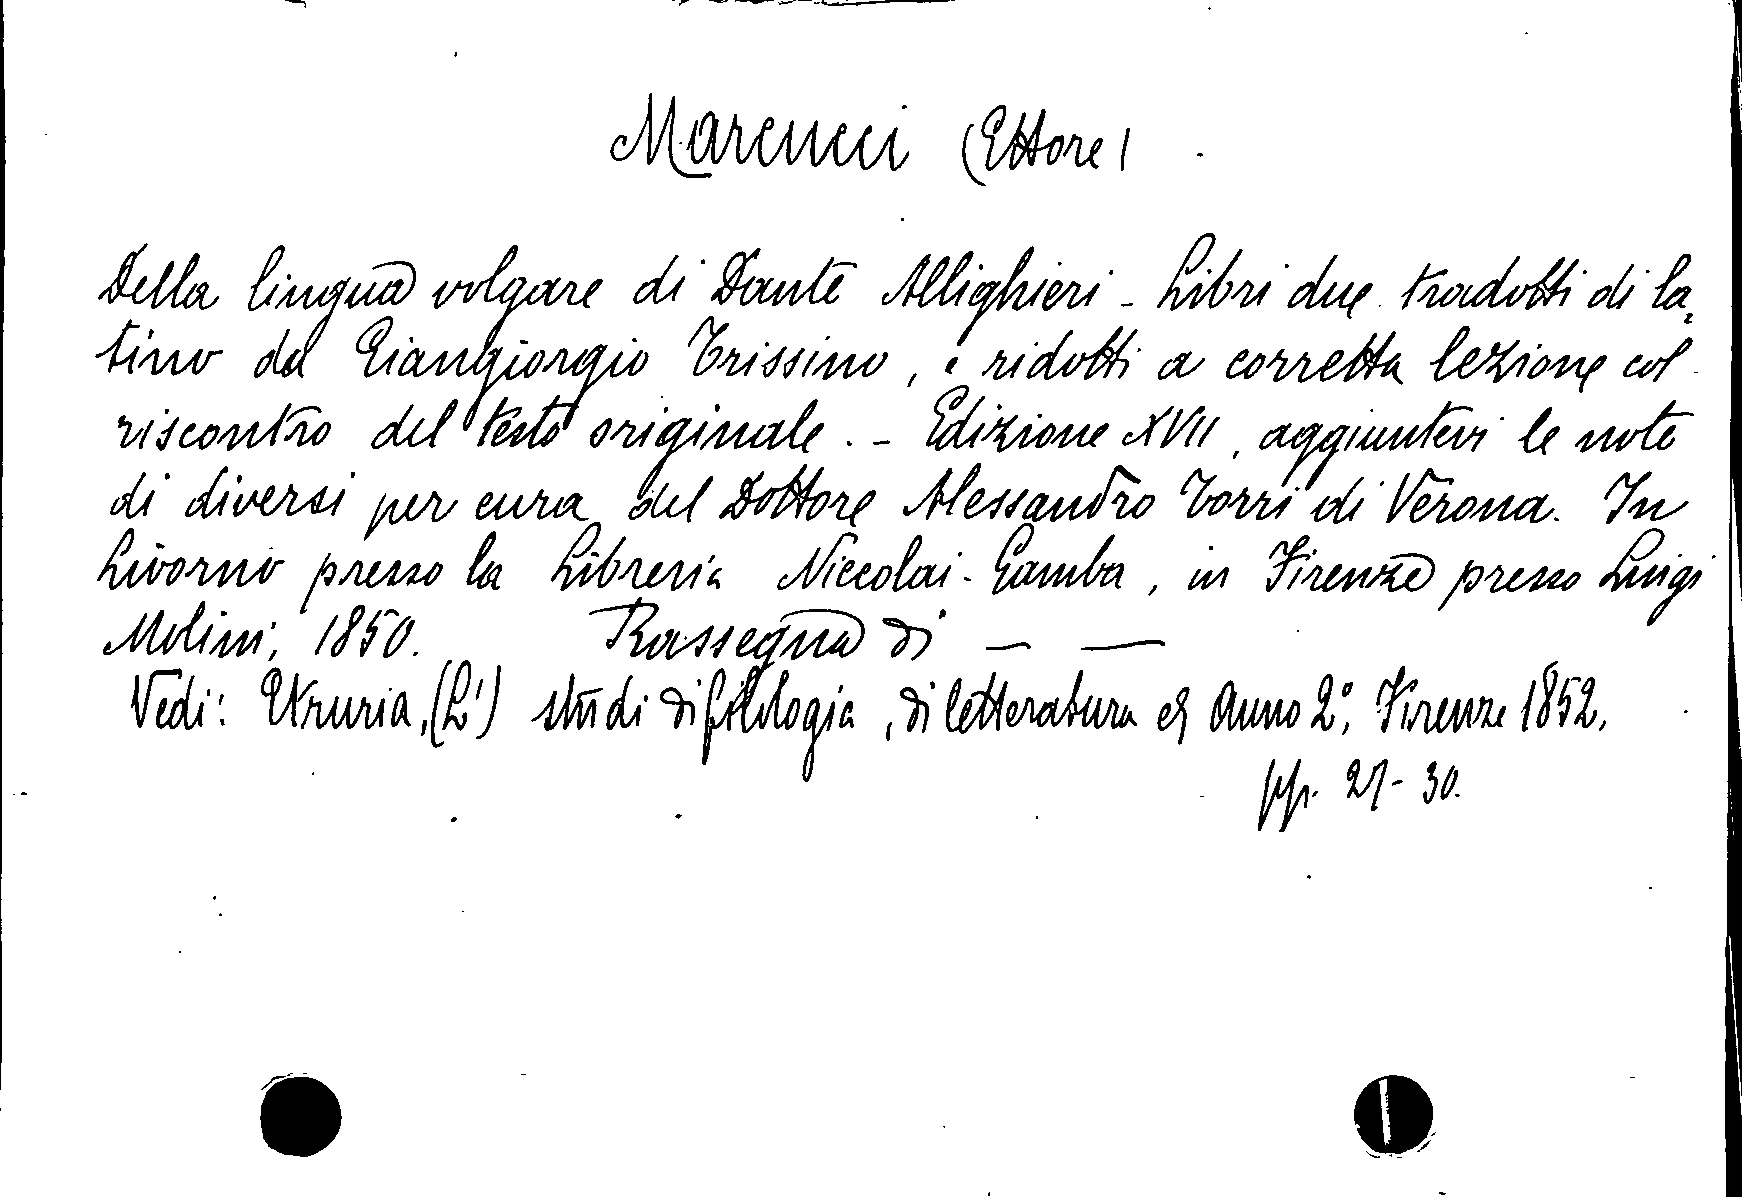 Marcucci (Ettore)
Della lingua volgare di Dante Allighieri - Libri due tradotti di la-
tino da Giangiorgio Trissino, e ridotti a corretta lezione col
riscontro del testo originale. - Edizione XVII, aggiuntevi le note
di diversi per cura del Dottore Alessandro Torri di Verona. In
Livorno presso la Libreria Niccolai-Gamba, in Firenze presso Luigi
Molini, 1850. Rassegna di — —
Vedi: Etruria, (L') studi di filologia, di letteratura Anno 2°, Firenze 1852,
pp. 27-30.